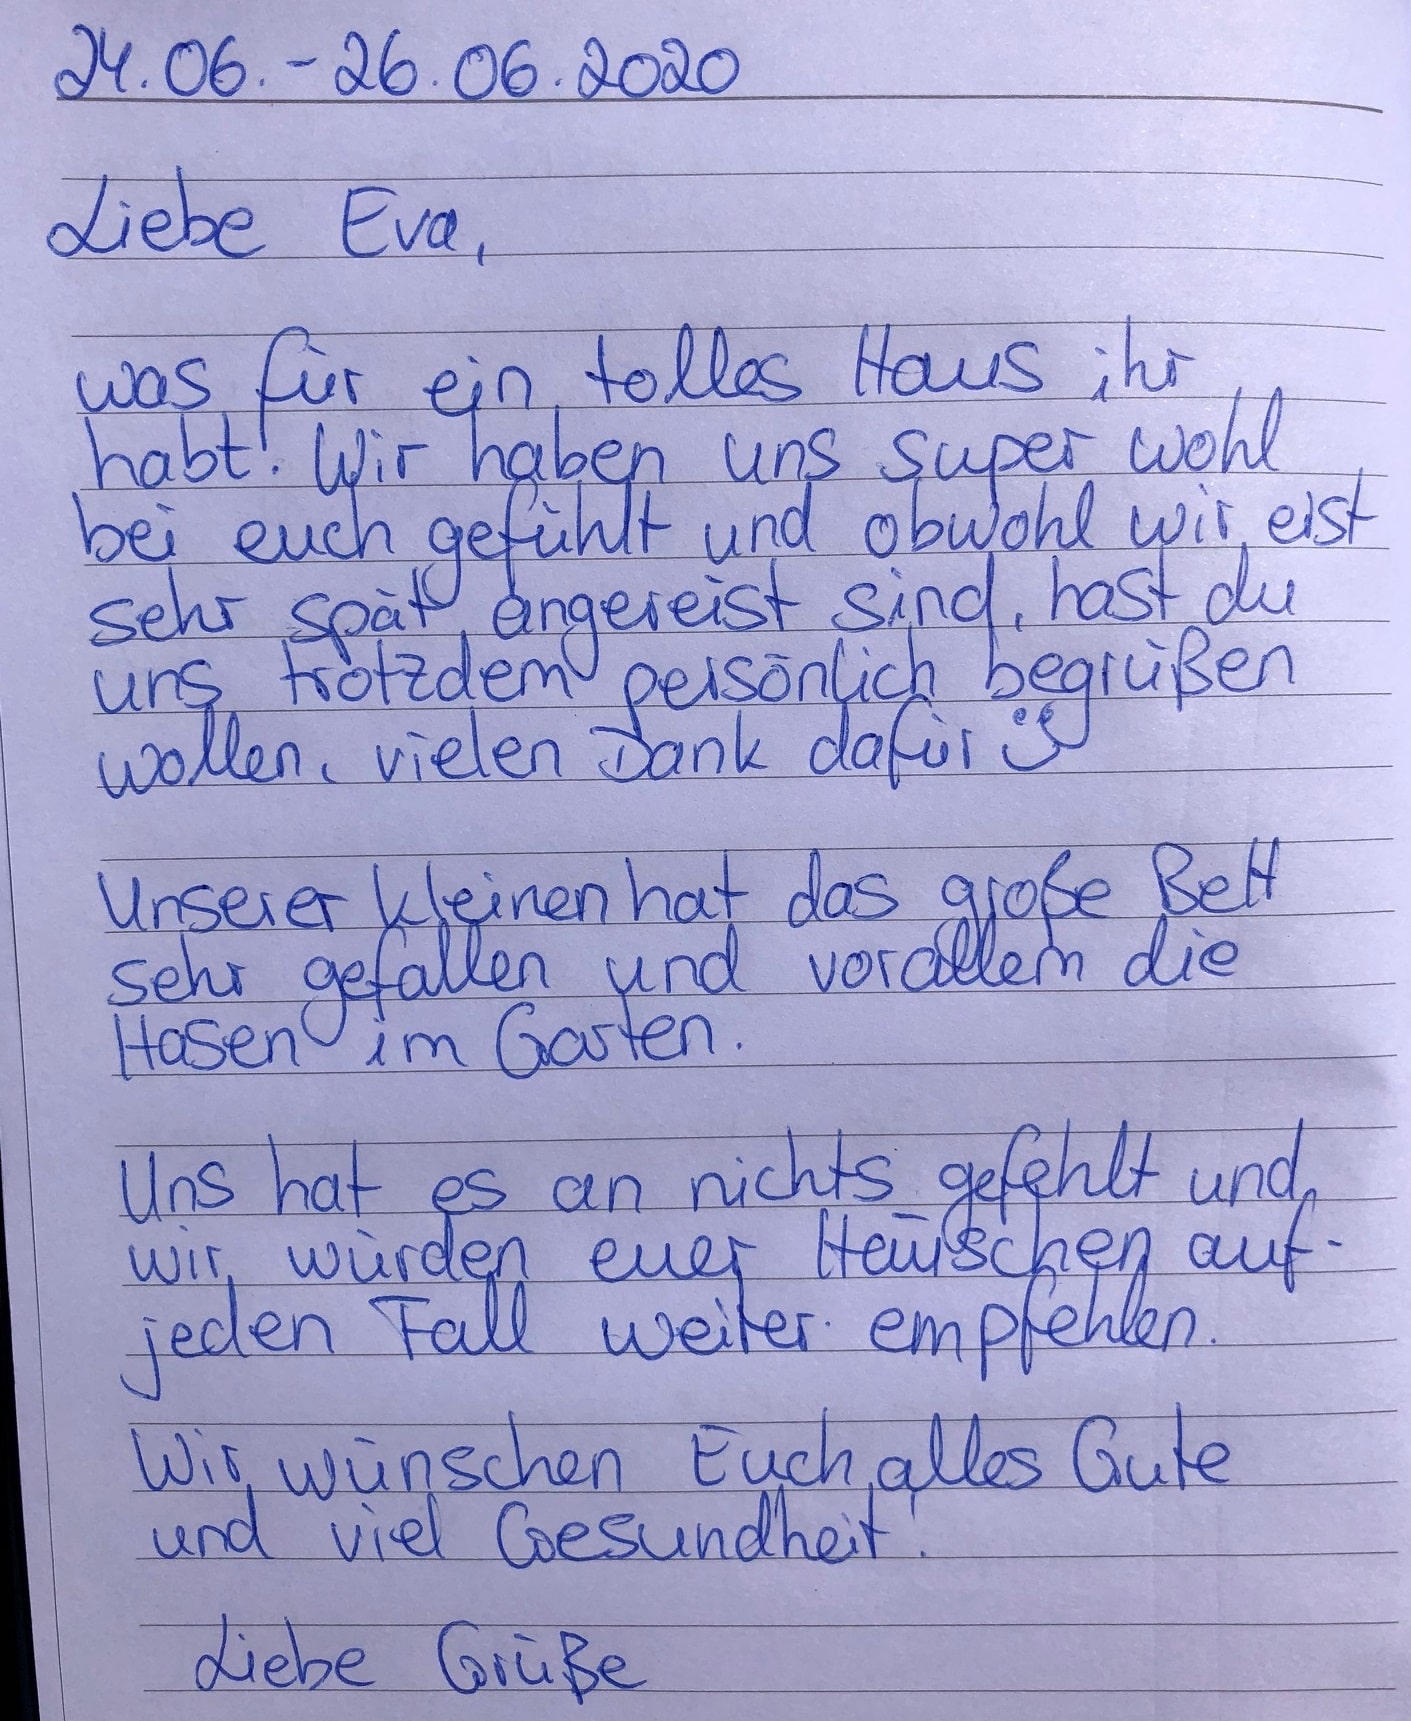 24.06. - 26.06.2020
Liebe Eva,
was für ein tolles Haus ihr
habt! Wir haben uns super wohl
bei euch gefühlt und obwohl wir erst
sehr spät angereist sind, hast du
uns trotzdem persönlich begrüßen
wollen, vielen Dank dafür
Unserer kleinen hat das große Bett
sehr gefallen und vorallem die
Hasen im Garten.
Uns hat es an nichts gefehlt und
wir würden euer Häuschen auf-
jeden Fall weiter empfehlen.
Wir wünschen Euch alles Gute
und viel Gesundheit!
Liebe Grüße